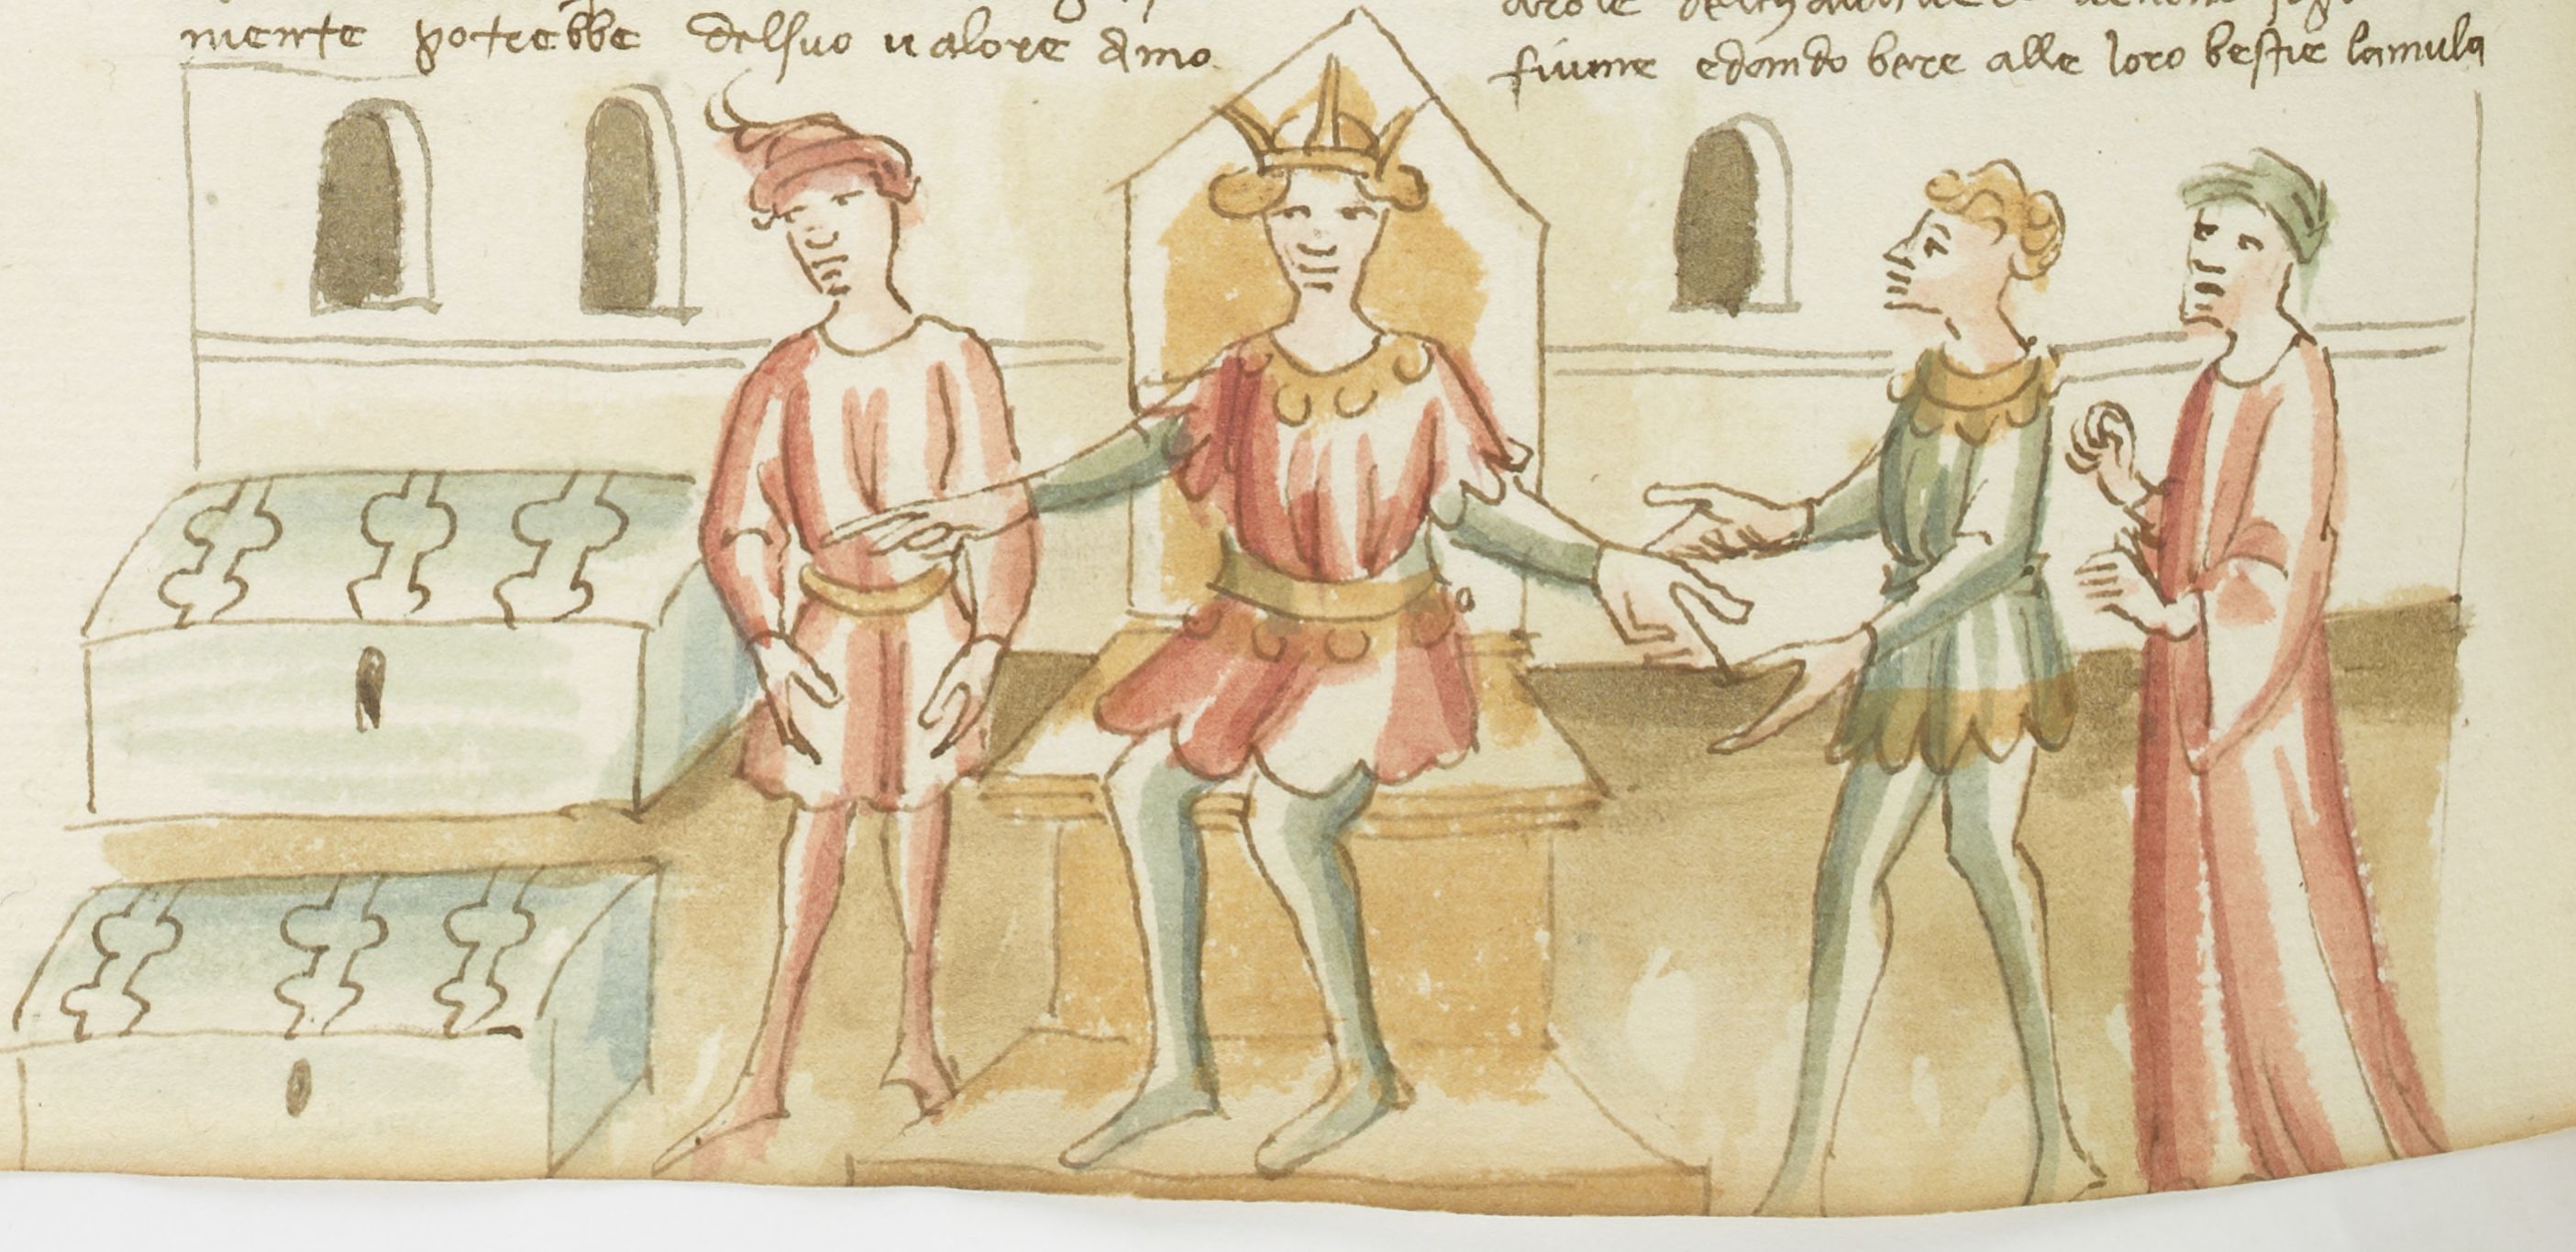 mente potrebbe delsuo ualore Amo
fiume edando bere alle loro bestie lamula